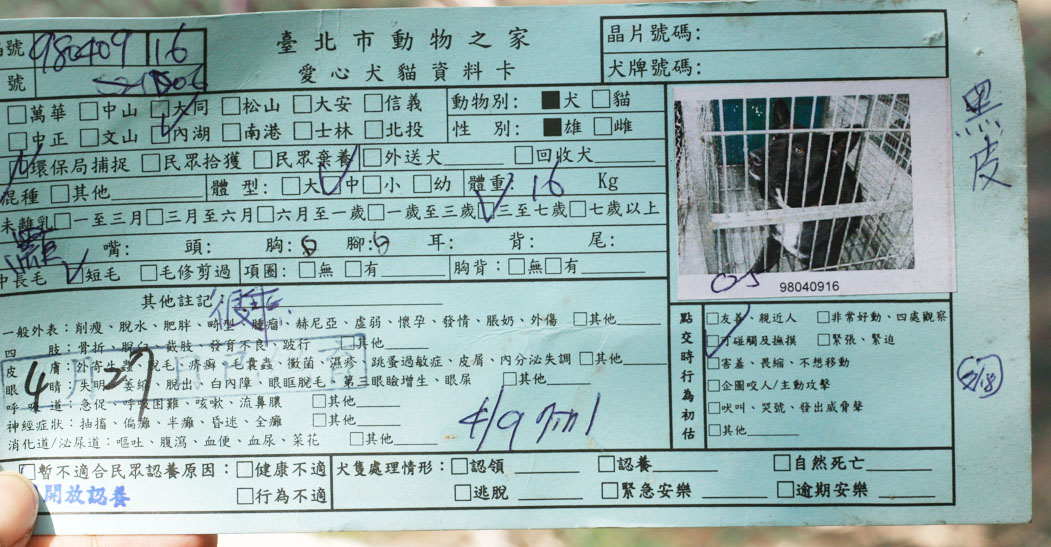 號 980409 16
號
臺北市動物之家
愛心犬貓資料卡
晶片號碼:
犬牌號碼:
□萬華 □中山 □大同 □松山 □大安 □信義
□中正 □文山 □內湖 □南港 □士林 □北投
動物別: ■犬 □貓
性 別: ■雄 □雌
環保局捕捉 □民眾拾獲 □民眾棄養 □外送犬 □回收犬
混種 □其他 體 型: □大 □中 □小 □幼 體重: 16 Kg
未離乳 □一至三月 □三月至六月 □六月至一歲 □一歲至三歲 □三至七歲 □七歲以上
嘴: 頭: 胸: 腳: 耳: 背: 尾:
中長毛 □短毛 □毛修剪過 項圈: □無 □有 胸背: □無 □有
黑皮
98040916
其他註記:
一般外表: 削瘦、脫水、肥胖、畸型、腫瘤、赫尼亞、虛弱、懷孕、發情、脹奶、外傷 □其他
四 肢: 骨折、脫臼、截肢、發育不良、跛行 □其他
皮 膚: 外寄生蟲、脫毛、疥癬、毛囊蟲、黴菌、濕疹、跳蚤過敏症、皮屑、內分泌失調 □其他
眼 睛: 失明、萎縮、脫出、白內障、眼眶脫毛、第三眼瞼增生、眼屎 □其他
呼吸道: 急促、呼吸困難、咳嗽、流鼻膿 □其他
神經症狀: 抽搐、偏癱、半癱、昏迷、全癱 □其他
消化道/泌尿道: 嘔吐、腹瀉、血便、血尿、菜花 □其他
4 27
4/9
點交時行為初估
□友善、親近人 □非常好動、四處觀察
□可碰觸及撫摸 □緊張、緊迫
□害羞、畏縮、不想移動
□企圖咬人/主動攻擊
□吠叫、哭號、發出威脅聲
□其他
□暫不適合民眾認養原因: □健康不適
□行為不適
開放認養
犬隻處理情形: □認領 □認養 □自然死亡
□逃脫 □緊急安樂 □逾期安樂